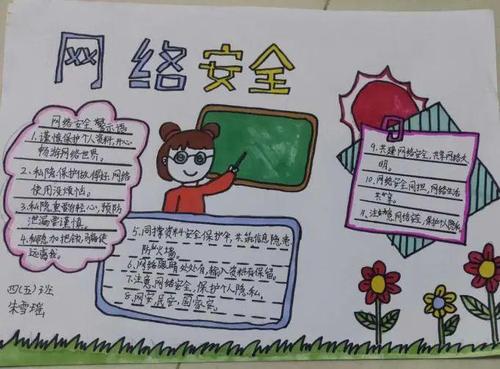 网络安全
网络安全警示语
1.谨慎保护个人资料,开心
畅游网络世界。
2.私隐保护做得好,网络
使用没烦恼。
3.私隐重要的轻心,预防
泄漏要谨慎。
4.私隐加把锁,骗徒
远离我。
5.同撑资料安全保护伞,共筑信息隐患
防火墙。
6.网络眼睛处处有,输入资料有保留。
7.注意网络安全,保护个人隐私。
8.网安,民安,国家安。
9.共建网络安全,共享网络文
明。
10.网络安全同担,网络生活
共享。
11.注意网络安全,保护个人隐私
四(五)班
朱雪瑶